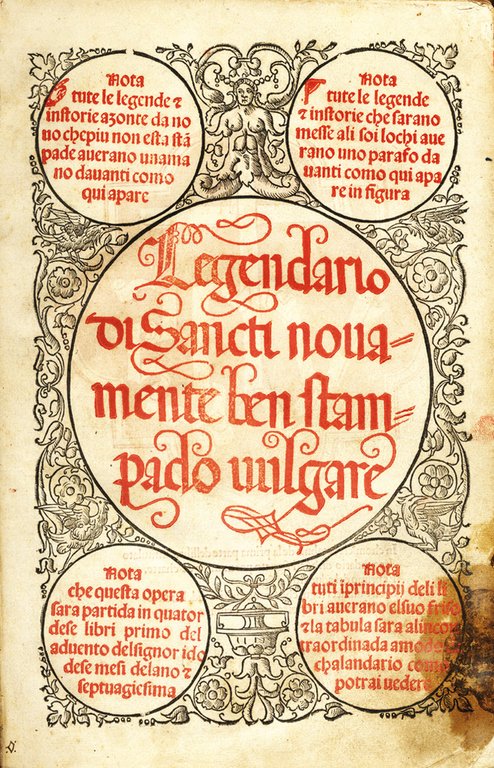 Nota
tute le legende ⁊
instorie azonte da no
uo chepiu non esta stã
pade auerano una ma
no dauanti como
qui apare
Nota
tute le legende
⁊ instorie che sarano
messe ali soi lochi aue
rano uno parafo da
uanti como qui apa
re in figura
Legendario
di Sancti noua=
mente ben stam=
pado uulgare
Nota
che questa opera
sara partida in quator
dese libri primo del
aduento del signor ido
dese mesi delano ⁊
septuagicsima
Nota
tuti ĩprincipij deli li
bri auerano elsuo friso
⁊ la tabula sara alincon
traordinada amodo di
chalandario como
potrai uedere